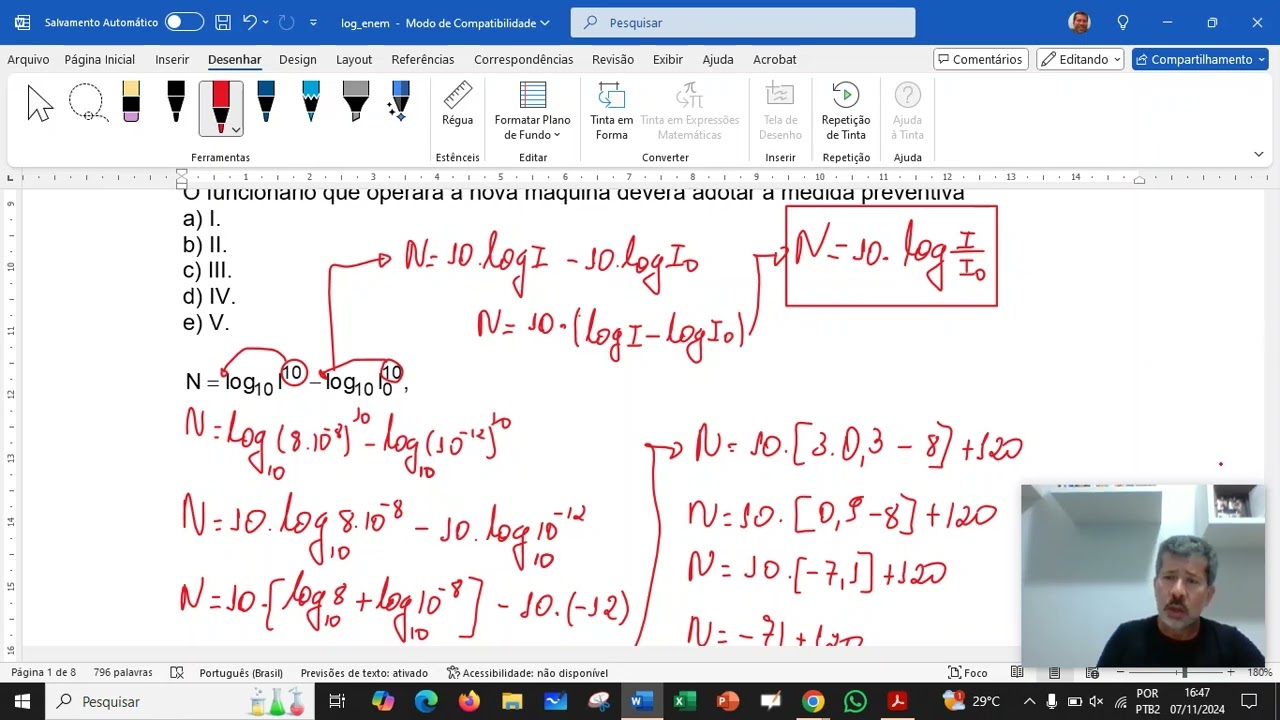 Salvamento Automático
log_enem - Modo de Compatibilidade
Pesquisar
Arquivo Página Inicial Inserir Desenhar Design Layout Referências Correspondências Revisão Exibir Ajuda Acrobat
Comentários Editando Compartilhamento
Régua Formatar Plano de Fundo Tinta em Forma Tinta em Expressões Matemáticas Tela de Desenho Repetição de Tinta Ajuda à Tinta
Ferramentas Estênceis Editar Converter Inserir Repetição Ajuda
1 2 3 4 5 6 7 8 9 10 11 12 13 14
9
10
11
12
13
14
15
16
O funcionário que operará a nova máquina deverá adotar a medida preventiva
a) I.
b) II.
c) III.
d) IV.
e) V.
N = 10.log I - 10.log I₀
N = 10.(log I - log I₀)
N = 10. log I/I₀
N = log₁₀ I¹⁰ - log₁₀ I₀¹⁰,
N = log₁₀ (8.10⁻⁸)¹⁰ - log₁₀ (10⁻¹²)¹⁰
N = 10.log₁₀ 8.10⁻⁸ - 10.log₁₀ 10⁻¹²
N = 10.[log₁₀ 8 + log₁₀ 10⁻⁸] - 10.(-12)
N = 10.[3.0,3 - 8] + 120
N = 10.[0,9 - 8] + 120
N = 10.[-7,1] + 120
N = -71 + 120
Página 1 de 8 796 palavras Português (Brasil) Previsões de texto: ativado Acessibilidade: não disponível Foco 180%
Pesquisar
29°C
POR
PTB2
16:47
07/11/2024